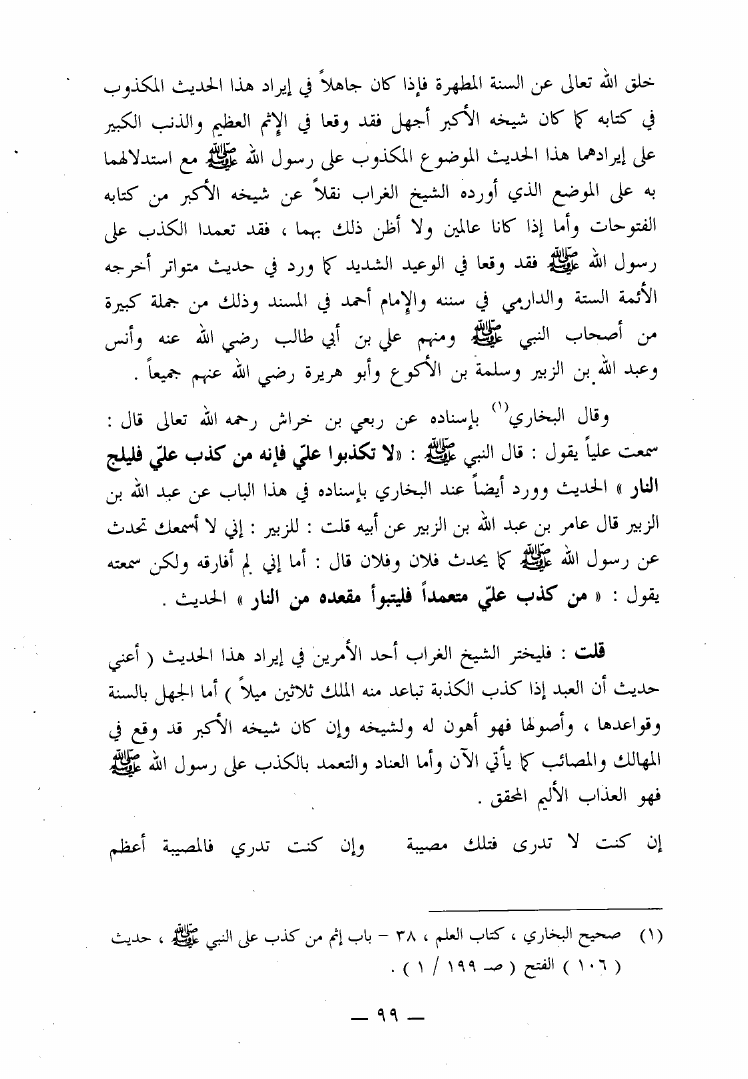 خلق الله تعالى عن السنة المطهرة فإذا كان جاهلاً في إيراد هذا الحديث المكذوب
في كتابه كما كان شيخه الأكبر أجهل فقد وقعا في الإثم العظيم والذنب الكبير
على إيرادهما هذا الحديث الموضوع المكذوب على رسول الله ﷺ مع استدلالهما
به على الموضع الذي أورده الشيخ الغراب نقلاً عن شيخه الأكبر من كتابه
الفتوحات وأما إذا كانا عالمين ولا أظن ذلك بهما ، فقد تعمدا الكذب على
رسول الله ﷺ فقد وقعا في الوعيد الشديد كما ورد في حديث متواتر أخرجه
الأئمة الستة والدارمي في سننه والإمام أحمد في المسند وذلك من جملة كبيرة
من أصحاب النبي ﷺ ومنهم علي بن أبي طالب رضي الله عنه وأنس
وعبد الله بن الزبير وسلمة بن الأكوع وأبو هريرة رضي الله عنهم جميعاً .
وقال البخاري(١) بإسناده عن ربعي بن خراش رحمه الله تعالى قال :
سمعت علياً يقول : قال النبي ﷺ : «لا تكذبوا عليّ فإنه من كذب عليّ فليلج
النار » الحديث وورد أيضاً عند البخاري بإسناده في هذا الباب عن عبد الله بن
الزبير قال عامر بن عبد الله بن الزبير عن أبيه قلت : للزبير : إني لا أسمعك تحدث
عن رسول الله ﷺ كما يحدث فلان وفلان قال : أما إني لم أفارقه ولكن سمعته
يقول : « من كذب عليّ متعمداً فليتبوأ مقعده من النار » الحديث .
قلت : فليختر الشيخ الغراب أحد الأمرين في إيراد هذا الحديث ( أعني
حديث أن العبد إذا كذب الكذبة تباعد منه الملك ثلاثين ميلاً ) أما الجهل بالسنة
وقواعدها ، وأصولها فهو أهون له ولشيخه وإن كان شيخه الأكبر قد وقع في
المهالك والمصائب كما يأتي الآن وأما العناد والتعمد بالكذب على رسول الله ﷺ
فهو العذاب الأليم المحقق .
إن كنت لا تدرى فتلك مصيبة وإن كنت تدري فالمصيبة أعظم
(١) صحيح البخاري ، كتاب العلم ، ٣٨ - باب إثم من كذب على النبي ﷺ ، حديث
( ١٠٦ ) الفتح ( صـ ١٩٩ / ١ ) .
— ٩٩ —